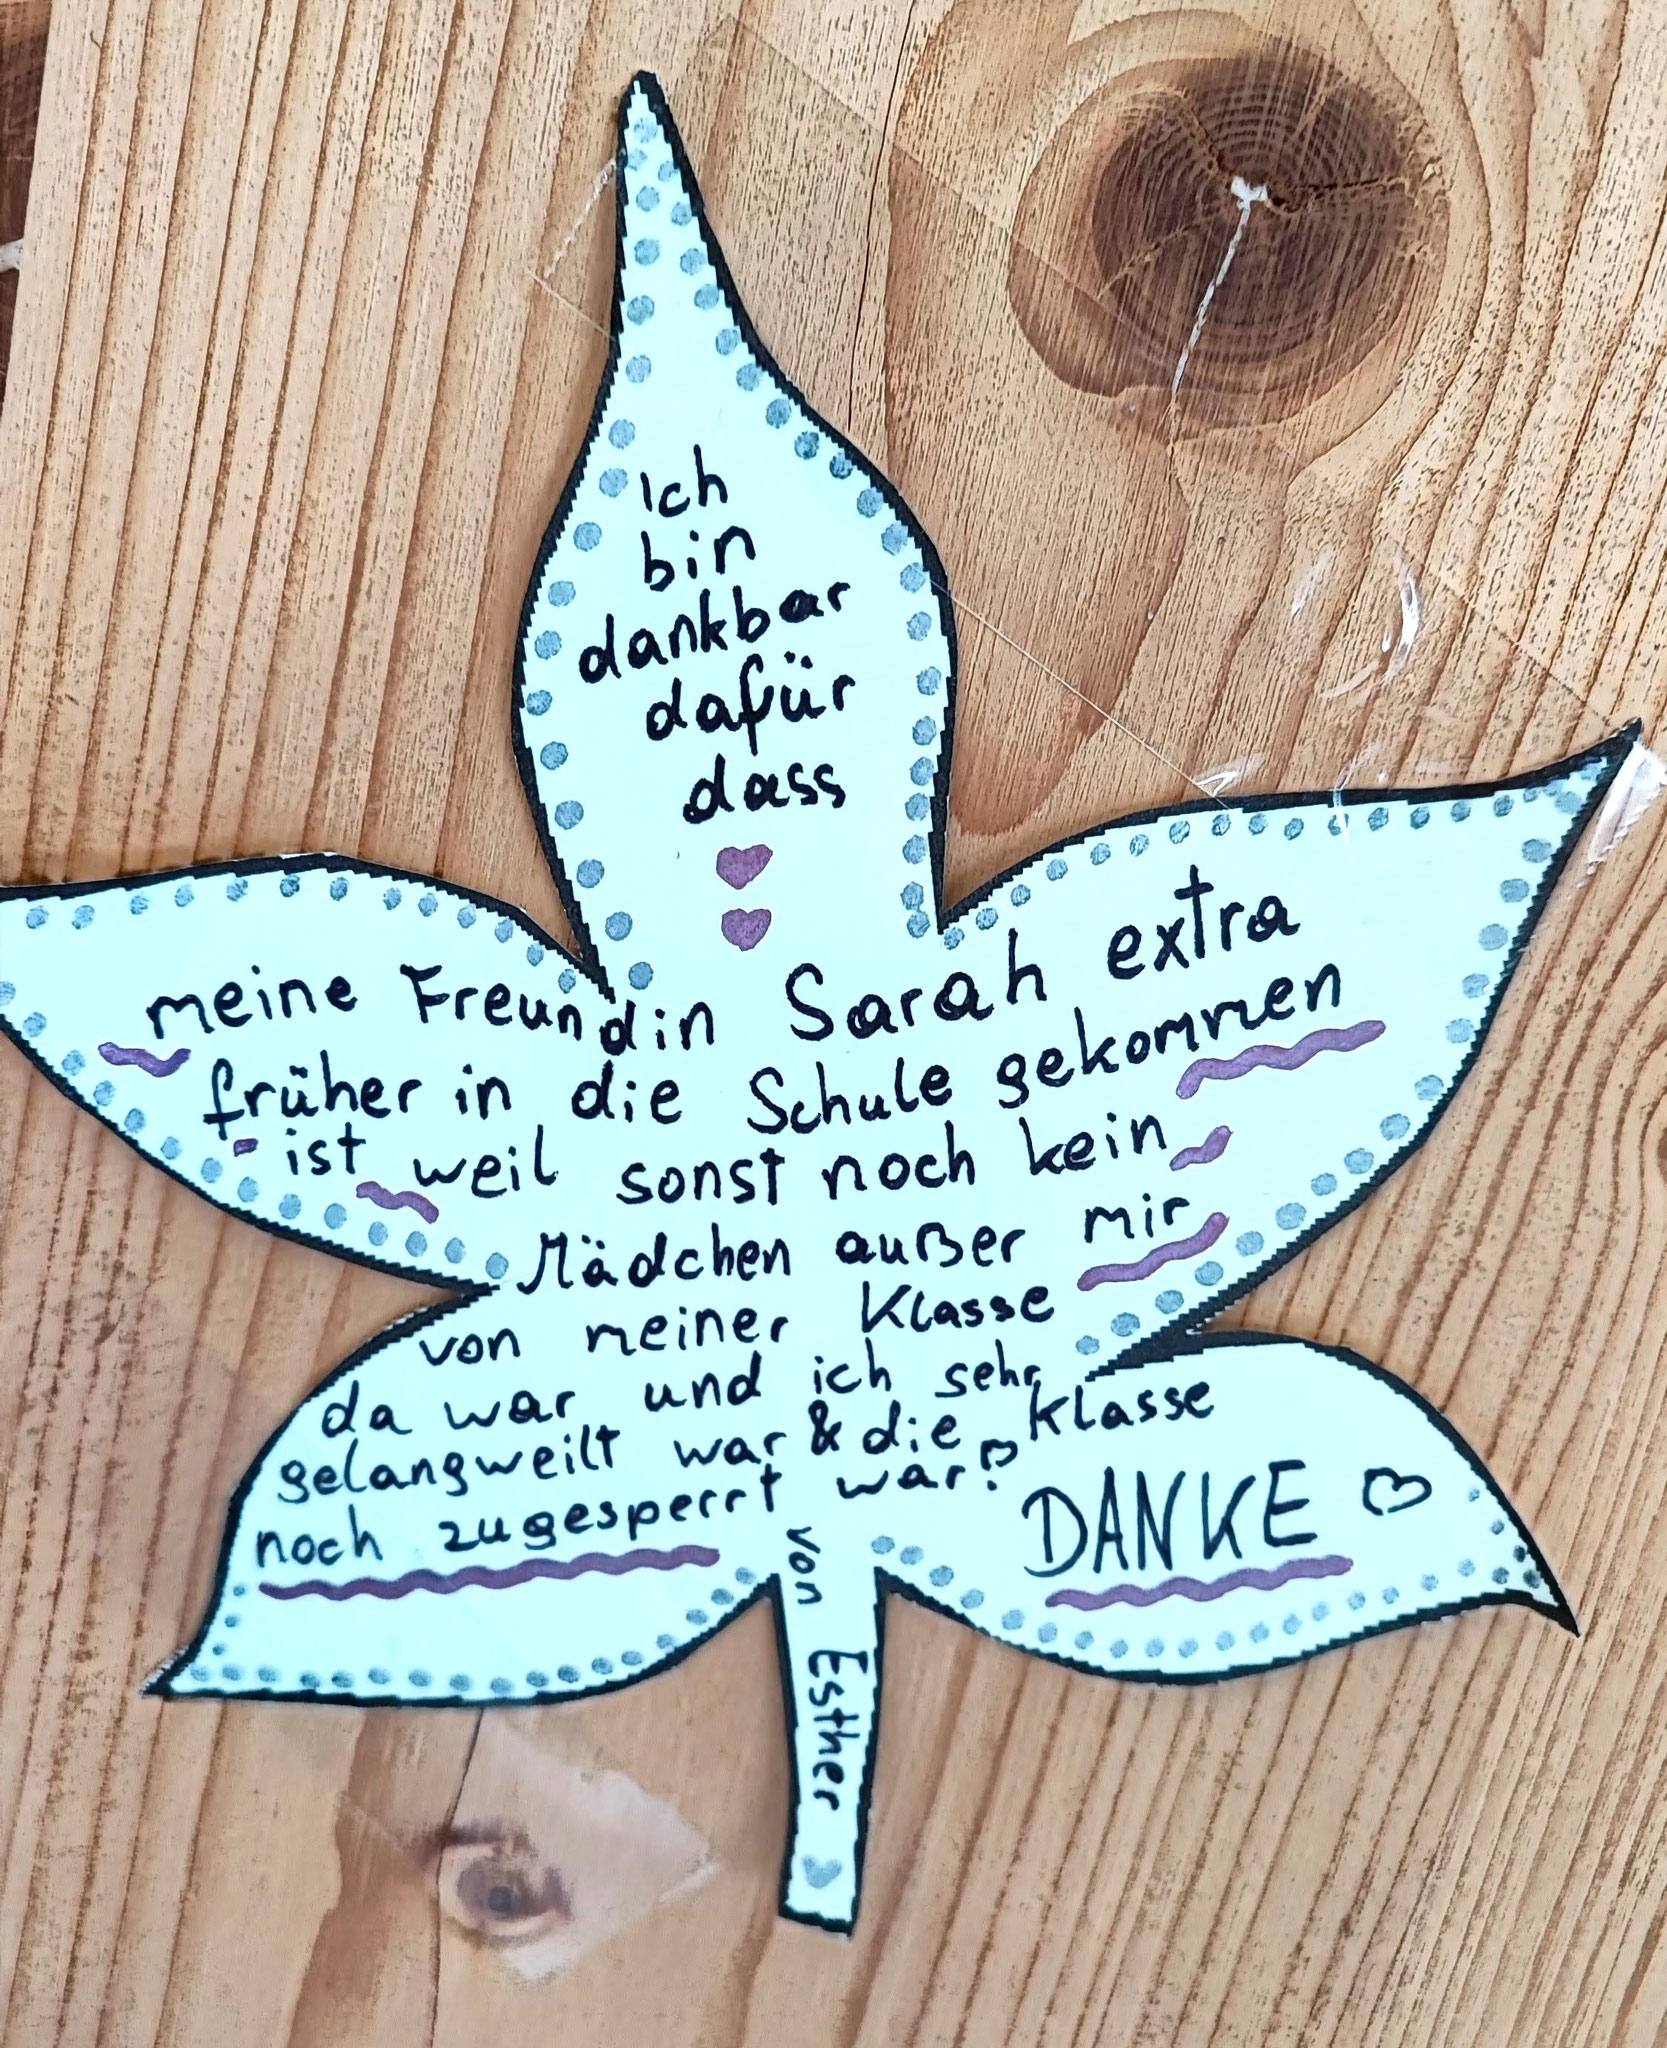 Ich
bin
dankbar
dafür
dass
meine Freundin Sarah extra
früher in die Schule gekommen
ist weil sonst noch kein
Mädchen außer mir
von meiner Klasse
da war und ich sehr
gelangweilt war & die Klasse
noch zugesperrt war!
DANKE
von Esther